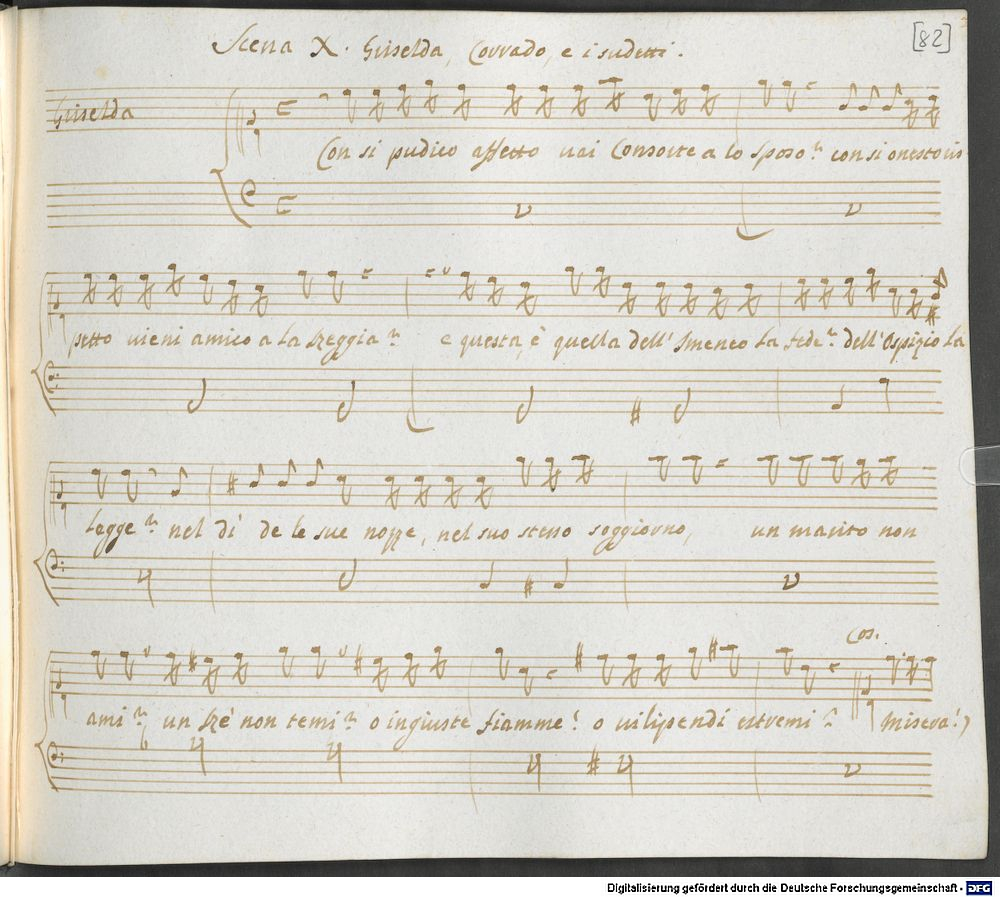 Scena X. Griselda, Corrado, e i sudetti.
[82]
Griselda
Con si pudico affetto vai Consorte a lo sposo? con si onesto ris
petto vieni amico a la Reggia? e questa, è quella dell' Imeneo la fede? dell' Ospizio la
legge? nel dì de le sue nozze, nel suo stesso soggiorno, un marito non
Cos.
ami? un Rè non temi? o ingiuste fiamme! o vilipendi estremi! Misera!)
6
Digitalisierung gefördert durch die Deutsche Forschungsgemeinschaft - DFG